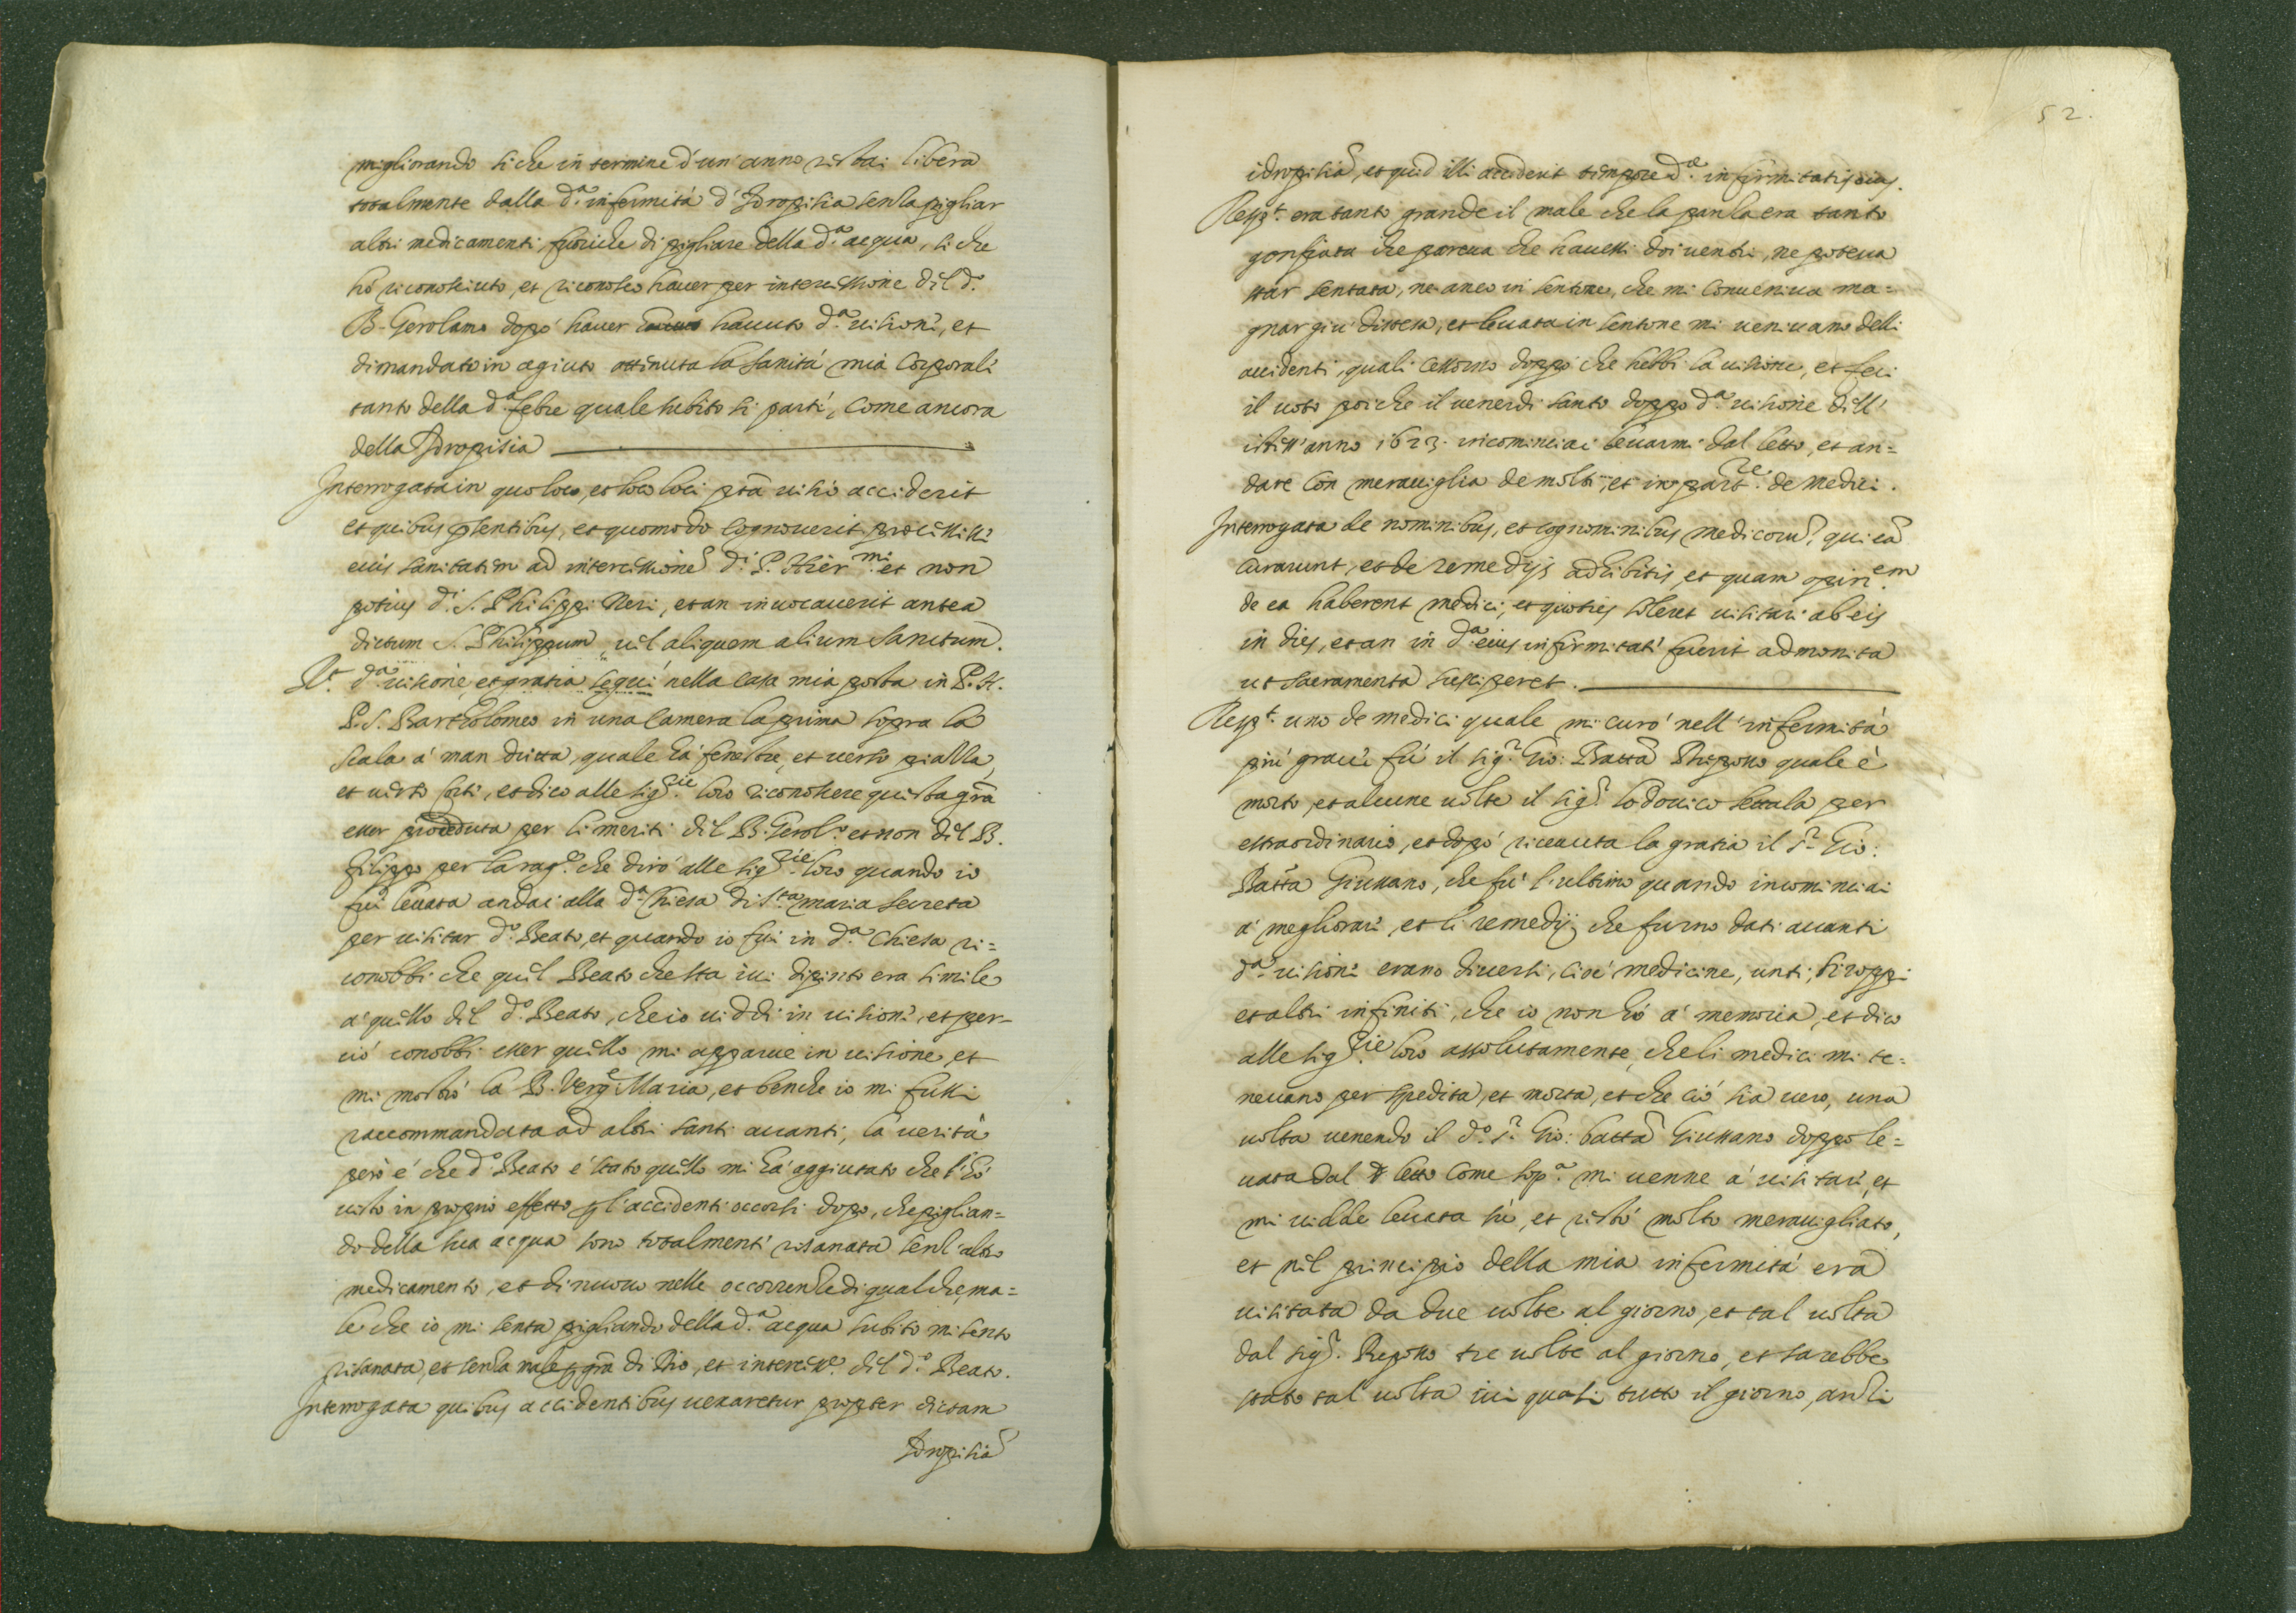 migliorando si che in termine d'un' anno restai libera
totalmente dalla d.ª infermità d'Idropisia senza pigliar
altri medicamenti fuoriche di pigliare della d.ª acqua, si che
hò riconosciuto, et riconosco haver per intercessione dil d.º
B. Gerolamo dopò haver havuto d.ª visione, et
dimandato in agiuto ottenuta la sanità mia corporale
tanto della d.ª febre quale subito si partì, come ancora
della Idropisia
Interrogata in quo loco, et loco loci pta visio acciderit
et quibus pntibus, et quomodo cognoverit processisse
eius sanitatem ad intercessione d.i P. Hier.mi et non
potius d.i S. Philippi Neri, et an invocaverit antea
dictum S. Philippum vel aliquem alium Sanctum.
R.t d.ª visione et gratia seguì nella casa mia posta in P. N.
P. S. Bartholomeo in una camera la prima sopra la
scala a' man dritta, quale hà fenestre, et verso piazza,
et verso corte, et dico alle sig.rie loro riconoscere questa grã
esser proceduta per li meriti dil B. Gerol.º et non dil B.
Filippo per la rag.e che dirò alle sig.rie loro quando io
fui levata andai alla d.ª Chiesa di S.ta Maria Secreta
per visitar d.º Beato, et quando io fui in d.ª Chiesa ri=
conobbi che quel Beato che sta ivi dipinto era simile
a' quello dil d.º Beato, che io viddi in visione, et per=
ciò conobbi esser quello mi apparve in visione, et
mi mostrò la B. Verg.e Maria, et benche io mi fussi
raccommandata ad altri santi avanti, la verità
però è che d.º Beato è stato quello mi hà aggiutato che l'hò
visto in proprio effetto p l'accidenti occorsi dopo, che piglian=
do della sua acqua sono totalmente risanata senz'altro
medicamento, et di nuovo nelle occorrenze di qualche ma=
le che io mi senta pigliando della d.ª acqua subito mi sento
risanata, et senza male p grã di Dio, et intercess.e dil d.º Beato.
Interrogata quibus accidentibus vexaretur propter dictam
Idropisiã
52.
idropisiã, et quid illi acciderit tempore d.æ infirmitatis eius.
Resp.t era tanto grande il male che la panza era tanto
gonfiata che pareva che havessi doi ventri, ne poteva
star sentata, ne anco in sentone, che mi conveniva ma=
gnar giù distesa, et levata in sentone mi venivano delli
accidenti, quali cessorno doppò che hebbi la visione, et feci
il voto poiche il venerdi santo doppo d.ª visione dell'
istess' anno 1623. incominciai levarmi dal letto, et an=
dare con meraviglia de molti, et in part.re de medici.
Interrogata de nominibus, et cognominibus medicorũ, qui eã
curarunt, et de remedijs adhibitis, et quam opin.em
de ea haberent medici, et quoties soleret visitari ab eis
in dies, et an in d.ª eius infirmitate fuerit admonita
ut sacramenta susciperet.
Resp.t uno de medici quale mi curò nell'infermità
più grave fù il sig.r Gio: Batta Rezzono quale è
morto, et alcune volte il sig.r Lodovico Settala per
estraordinario, et dopò ricevuta la gratia il S.r Gio:
Batta Giussano, che fù l'ultimo quando incominciai
a' megliorare, et li remedij che furno dati avanti
d.ª visione erano diversi, cioè medicine, unti, siroppi
et altri infiniti, che io non hò a' memoria, et dico
alle sig.rie loro assolutamente, che li medici mi te=
nevano per spedita, et morta, et che ciò sia vero, una
volta venendo il d.º S.r Gio: batta Giussano doppo le=
vata dal letto come sop.ª mi venne a' visitare, et
mi vidde levata sù, et restò molto meravigliato,
et nel principio della mia infermità era
visitata da due volte al giorno, et tal volta
dal sig.r Rezono tre volte al giorno, et sarebbe
stato tal volta ivi quasi tutto il giorno, anzi